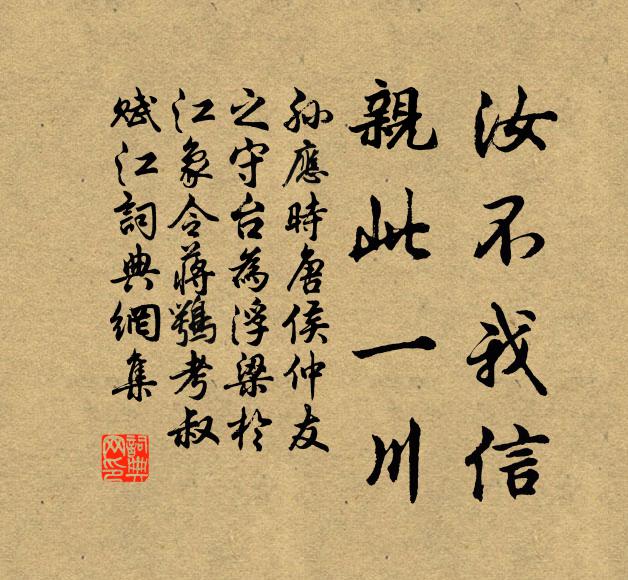 汝不我信
親此一川
孙應時唐侯仲友
之守台為浮梁於
江象令蔣鶚考叔
賦江詞典網集
詞典網印